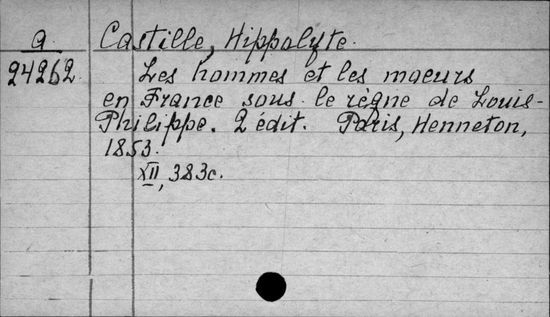 a Castille, Hippolyte.
24262 Les hommes et les moeurs
en France sous le règne de Louis-
Philippe. 2 édit. Paris, Henneton,
1853.
XII, 383c.